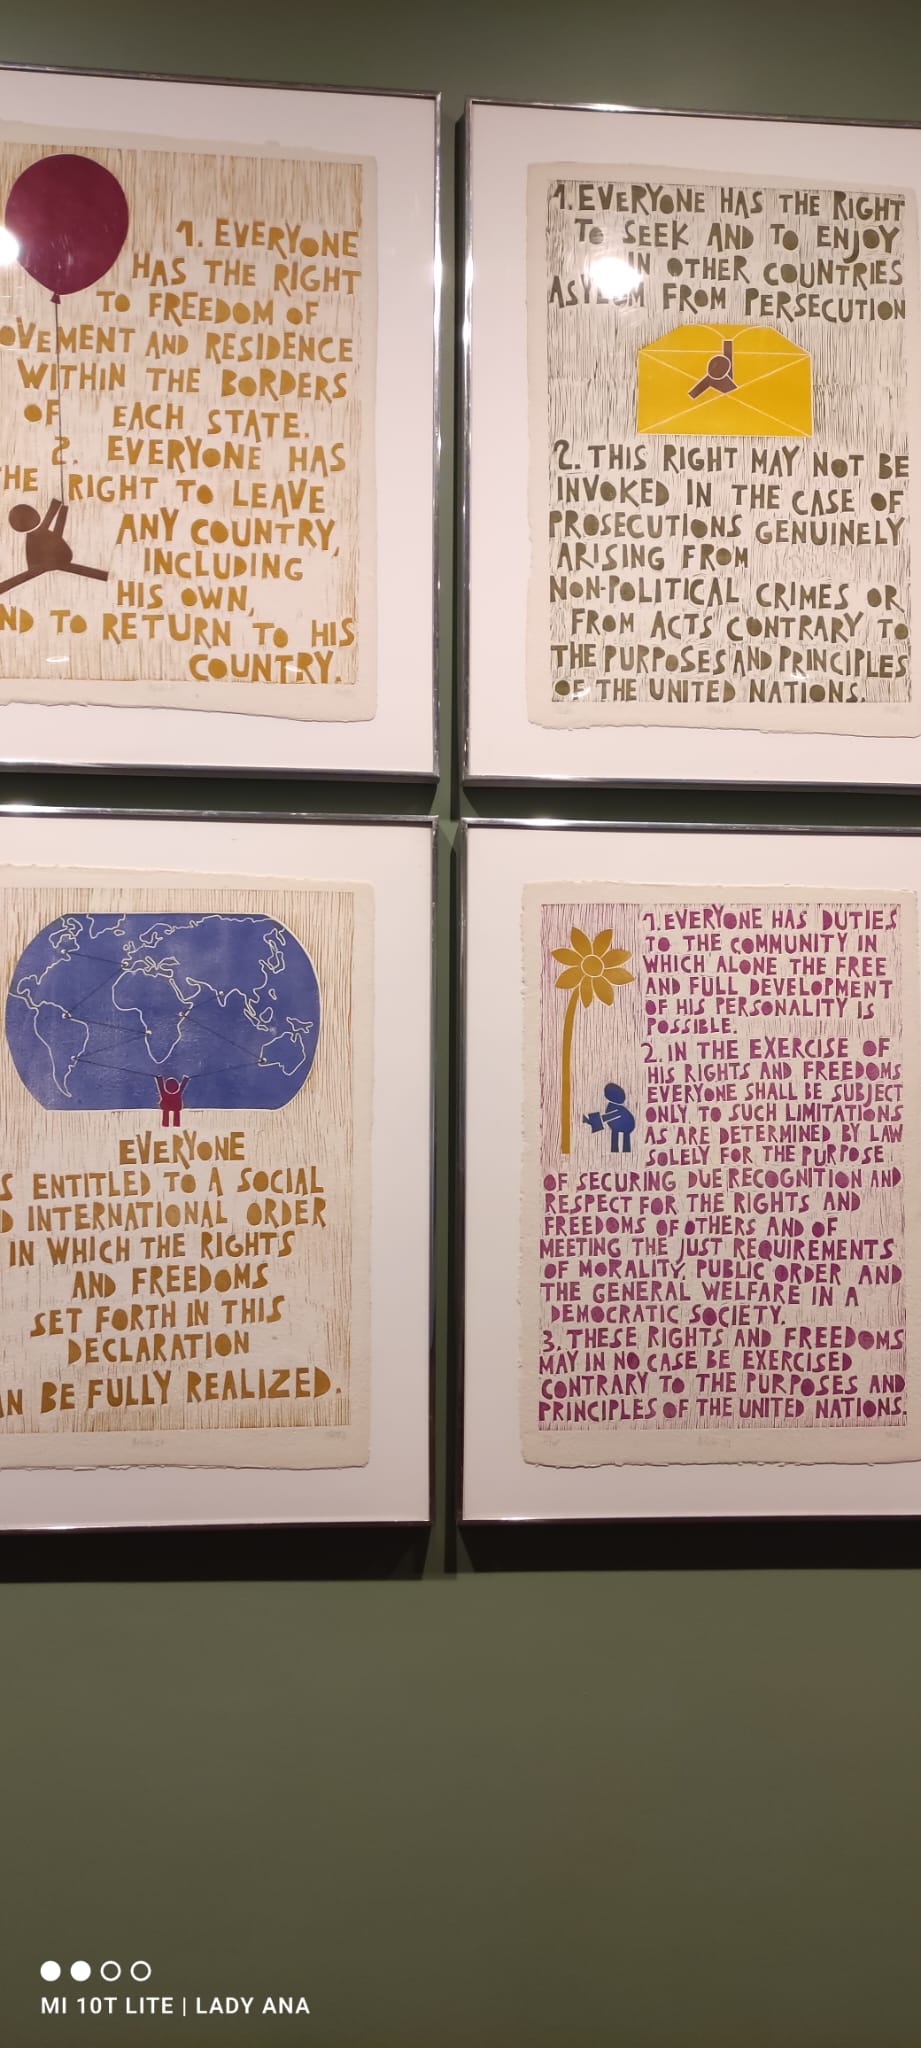 1. EVERYONE
HAS THE RIGHT
TO FREEDOM OF
OVEMENT AND RESIDENCE
WITHIN THE BORDERS
OF EACH STATE.
2. EVERYONE HAS
HE RIGHT TO LEAVE
ANY COUNTRY,
INCLUDING
HIS OWN,
ND TO RETURN TO HIS
COUNTRY.
1. EVERYONE HAS THE RIGHT
TO SEEK AND TO ENJOY
IN OTHER COUNTRIES
ASYLUM FROM PERSECUTION
2. THIS RIGHT MAY NOT BE
INVOKED IN THE CASE OF
PROSECUTIONS GENUINELY
ARISING FROM
NON-POLITICAL CRIMES OR
FROM ACTS CONTRARY TO
THE PURPOSES AND PRINCIPLES
OF THE UNITED NATIONS.
EVERYONE
S ENTITLED TO A SOCIAL
D INTERNATIONAL ORDER
IN WHICH THE RIGHTS
AND FREEDOMS
SET FORTH IN THIS
DECLARATION
N BE FULLY REALIZED.
1. EVERYONE HAS DUTIES
TO THE COMMUNITY IN
WHICH ALONE THE FREE
AND FULL DEVELOPMENT
OF HIS PERSONALITY IS
POSSIBLE.
2. IN THE EXERCISE OF
HIS RIGHTS AND FREEDOMS
EVERYONE SHALL BE SUBJECT
ONLY TO SUCH LIMITATIONS
AS ARE DETERMINED BY LAW
SOLELY FOR THE PURPOSE
OF SECURING DUE RECOGNITION AND
RESPECT FOR THE RIGHTS AND
FREEDOMS OF OTHERS AND OF
MEETING THE JUST REQUIREMENTS
OF MORALITY, PUBLIC ORDER AND
THE GENERAL WELFARE IN A
DEMOCRATIC SOCIETY.
3. THESE RIGHTS AND FREEDOMS
MAY IN NO CASE BE EXERCISED
CONTRARY TO THE PURPOSES AND
PRINCIPLES OF THE UNITED NATIONS.
MI 10T LITE | LADY ANA